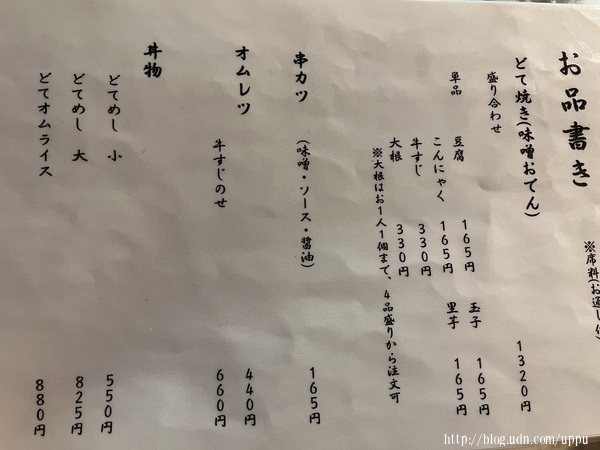 お品書き
※席料(お通し付
どて焼き(味噌おでん)
盛り合わせ 1320円
単品
豆腐 165円 玉子 165円
こんにゃく 165円 里芋 165円
牛すじ 330円
大根 330円
※大根はお1人1個まで、4品盛りから注文可
串カツ (味噌・ソース・醤油) 165円
オムレツ 440円
牛すじのせ 660円
丼物
どてめし 小 550円
どてめし 大 825円
どてオムライス 880円
http://blog.udn.com/uppu